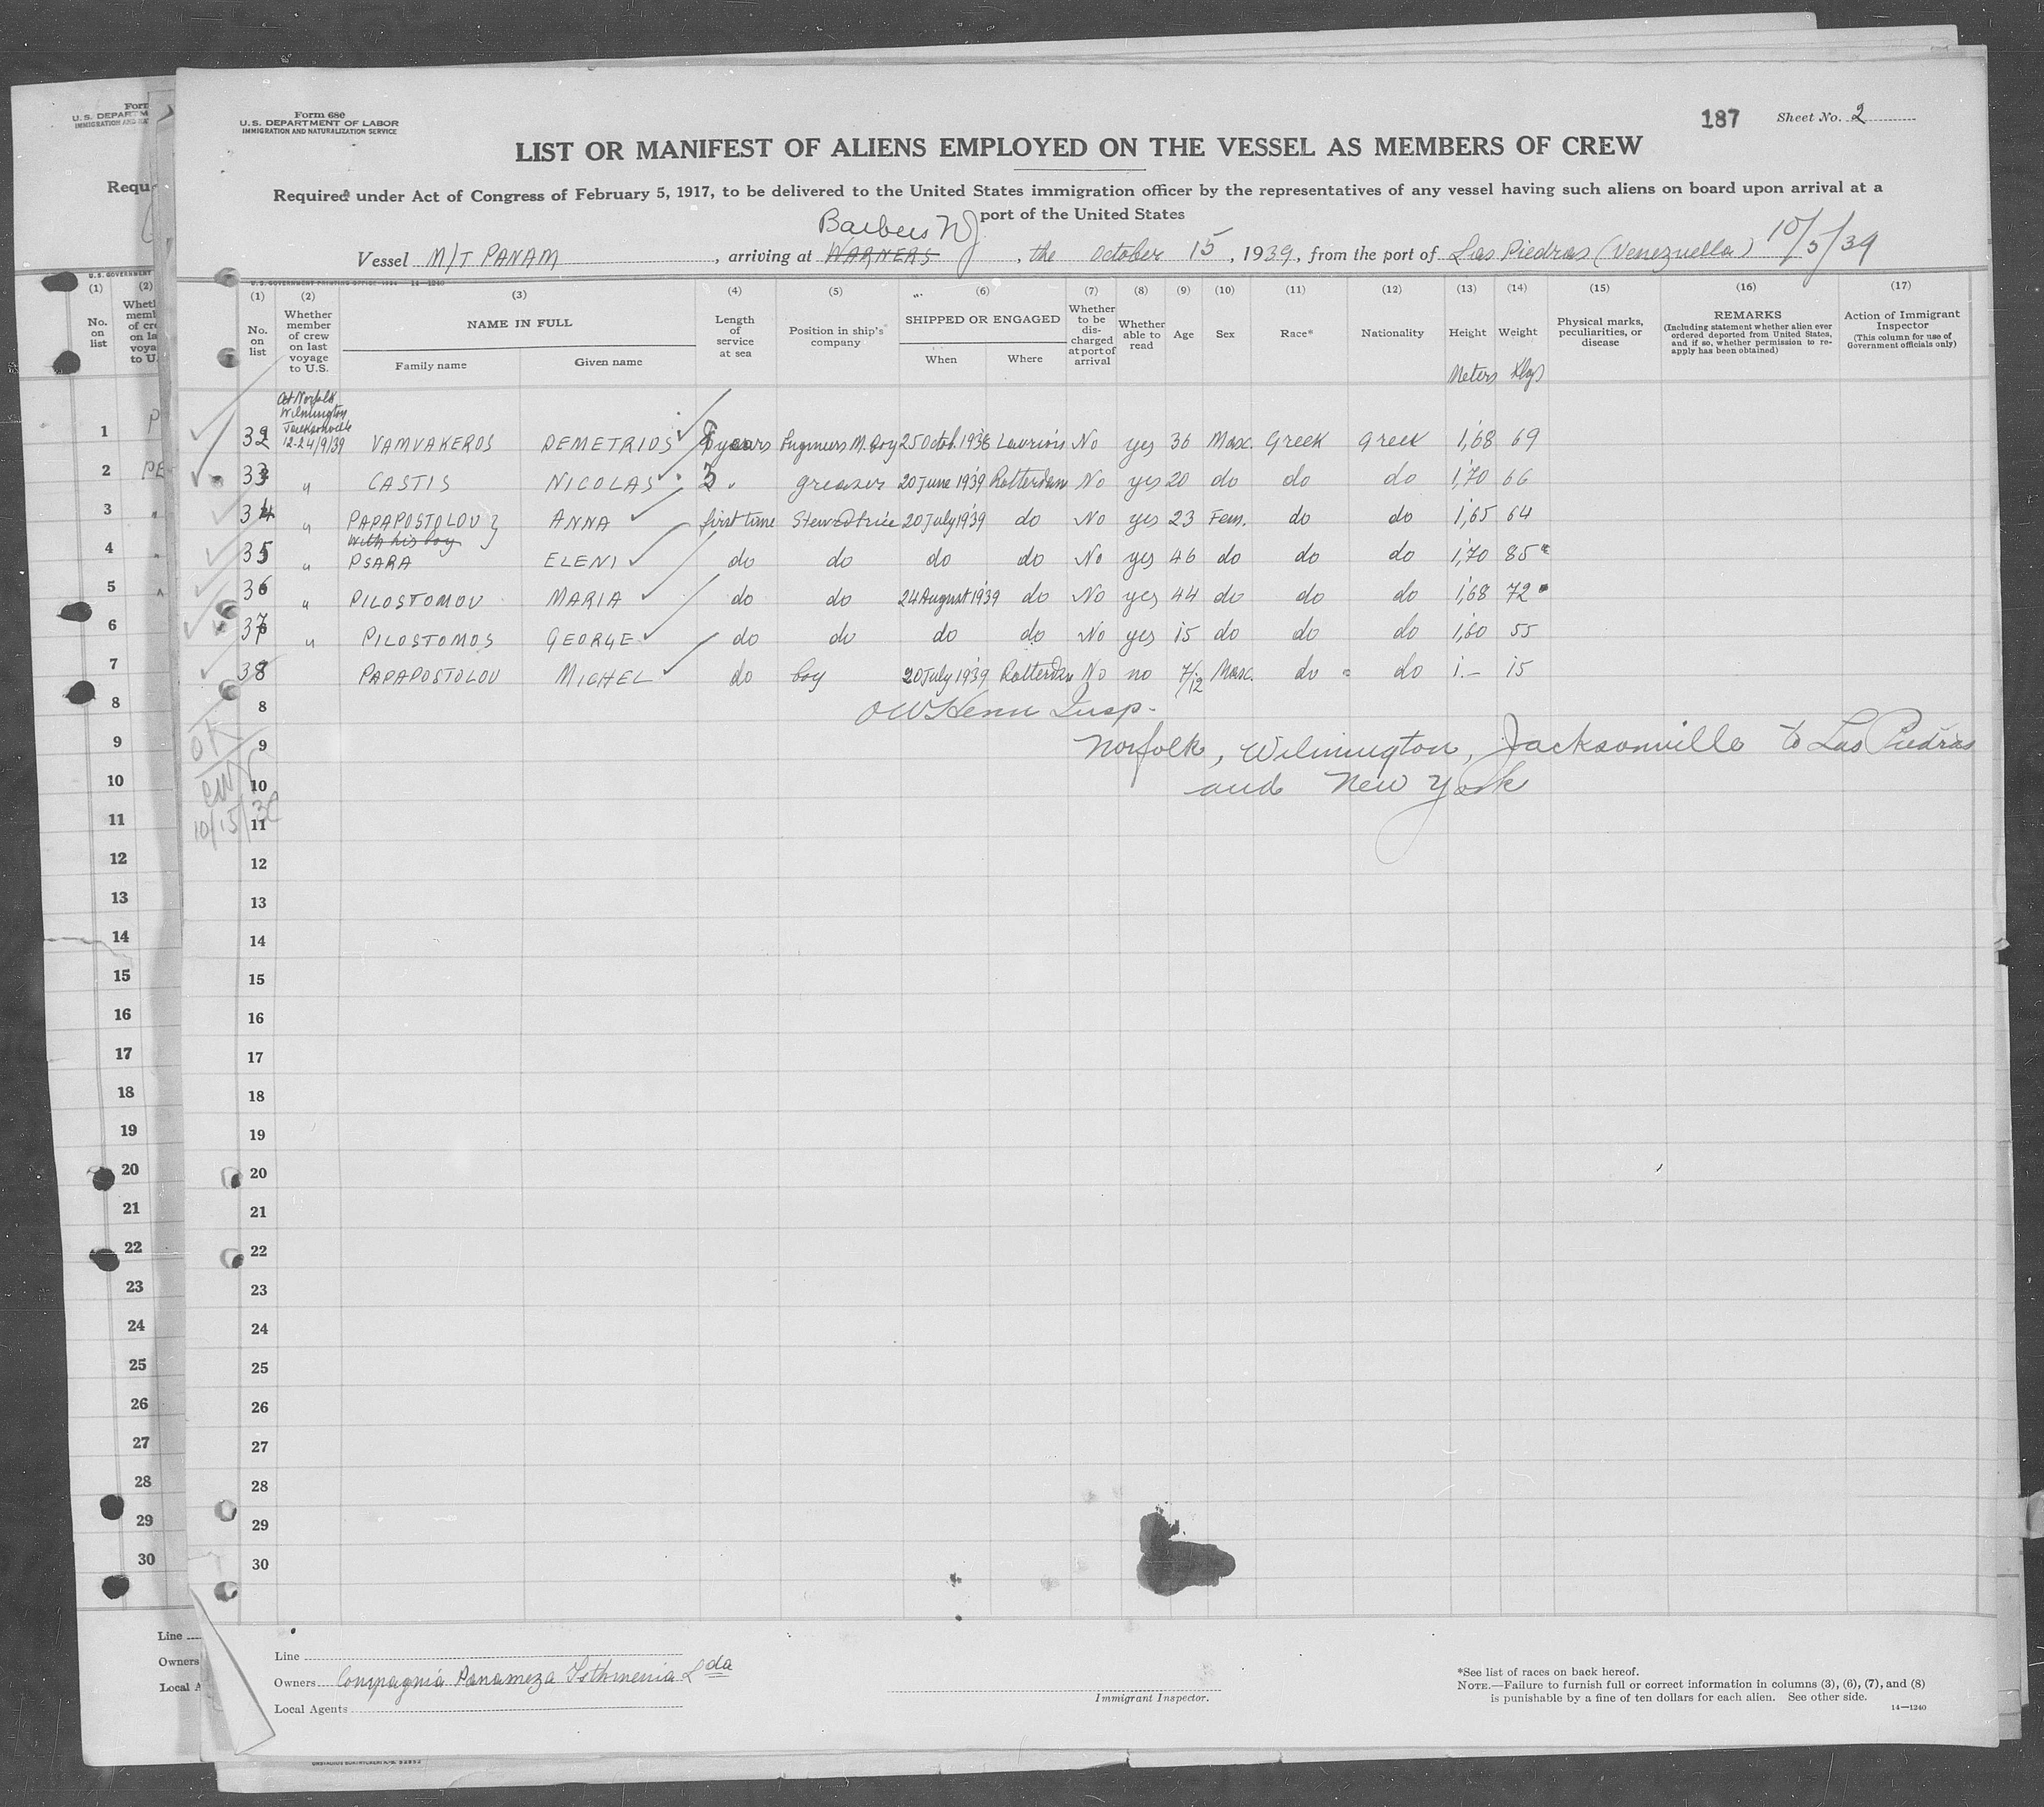 Form 680
U. S. DEPARTMENT OF LABOR
IMMIGRATION AND NATURALIZATION SERVICE
187 Sheet No. 2
LIST OR MANIFEST OF ALIENS EMPLOYED ON THE VESSEL AS MEMBERS OF CREW
Required under Act of Congress of February 5, 1917, to be delivered to the United States immigration officer by the representatives of any vessel having such aliens on board upon arrival at a
port of the United States
Vessel M/T PANAM, arriving at WARNERS, the October 15, 1939, from the port of Las Piedras (Venezuella) 10/5/39
(1) (2) (3) (4) (5) (6) (7) (8) (9) (10) (11) (12) (13) (14) (15) (16) (17)
No. on list
Whether member of crew on last voyage to U.S.
NAME IN FULL
Family name Given name
Length of service at sea
Position in ship's company
SHIPPED OR ENGAGED
When Where
Whether to be discharged at port of arrival
Whether able to read
Age
Sex
Race*
Nationality
Height
Weight
Physical marks, peculiarities, or disease
REMARKS
(Including statement whether alien ever ordered deported from United States, and if so, whether permission to reapply has been obtained)
Action of Immigrant Inspector
(This column for use of Government officials only)
Meters Klgs
At Norfolk
Wilmington
Jacksonville
12-24/9/39
32 VAMVAKEROS DEMETRIOS years M. Boy 25 Octob. 1938 No yes 36 Masc. Greek Greek 1,68 69
33 " CASTIS NICOLAS 3 " greaser 20 June 1939 Rotterdam No yes 20 do do do 1,70 66
34 " PAPAPOSTOLOU ANNA first time 20 July 1939 do No yes 23 Fem. do do 1,65 64
with his boy
35 " PSARA ELENI do do do do No yes 46 do do do 1,70 85
36 " PILOSTOMOU MARIA do do 24 August 1939 do No yes 44 do do do 1,68 72
37 " PILOSTOMOS GEORGE do do do do No yes 15 do do do 1,60 55
38 PAPAPOSTOLOU MICHEL do boy 20 July 1939 Rotterdam No no 7/12 Masc. do do 1.- 15
8
9 Norfolk, Wilmington, Jacksonville to Las Piedras
10 and New York
OK
10/15/39
11
12
13
14
15
16
17
18
19
20
21
22
23
24
25
26
27
28
29
30
Line
Owners Compagnia Panameza Isthmenia Lda
Local Agents
Immigrant Inspector.
*See list of races on back hereof.
NOTE.—Failure to furnish full or correct information in columns (3), (6), (7), and (8)
is punishable by a fine of ten dollars for each alien. See other side.
14—1240